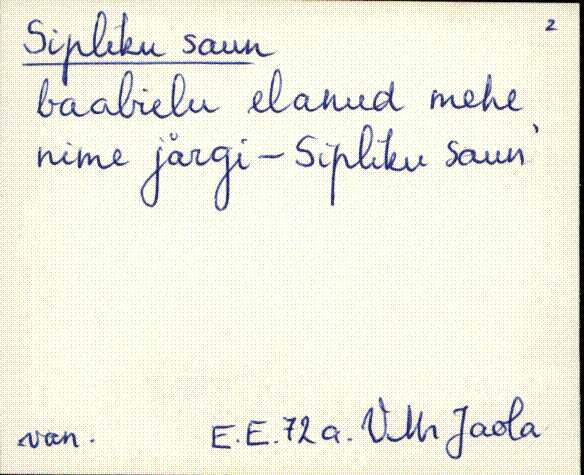 2
Sipliku saun
baabielu elanud mehe
nime järgi – Sipliku saun'
van. E.E. 72 a. VMr Jaola